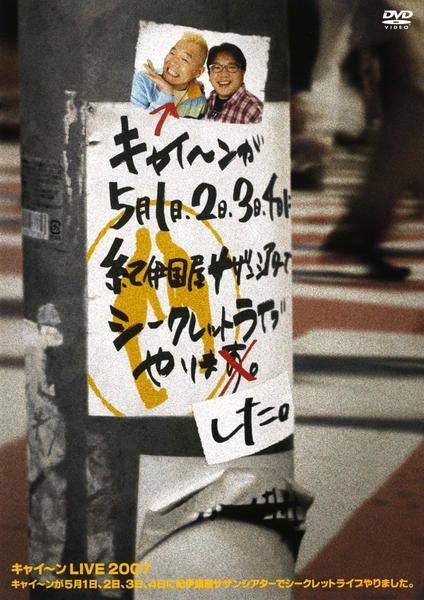 DVD
VIDEO
キャイ〜ンが
5月1日、2日、3日、4日に
紀伊国屋サザンシアターで
シークレットライブ
やります。
した。
キャイ〜ン LIVE 2007
キャイ〜ンが5月1日、2日、3日、4日に紀伊國屋サザンシアターでシークレットライブやりました。